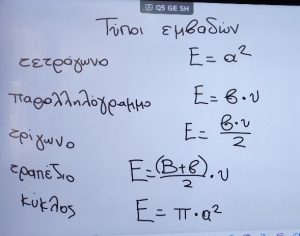 Q5 GE SH
Τύποι εμβαδών
τετράγωνο E = α²
παραλληλόγραμμο E = β·υ
τρίγωνο E = β·υ/2
τραπέζιο E = (B+β)/2 · υ
κύκλος E = π·α²